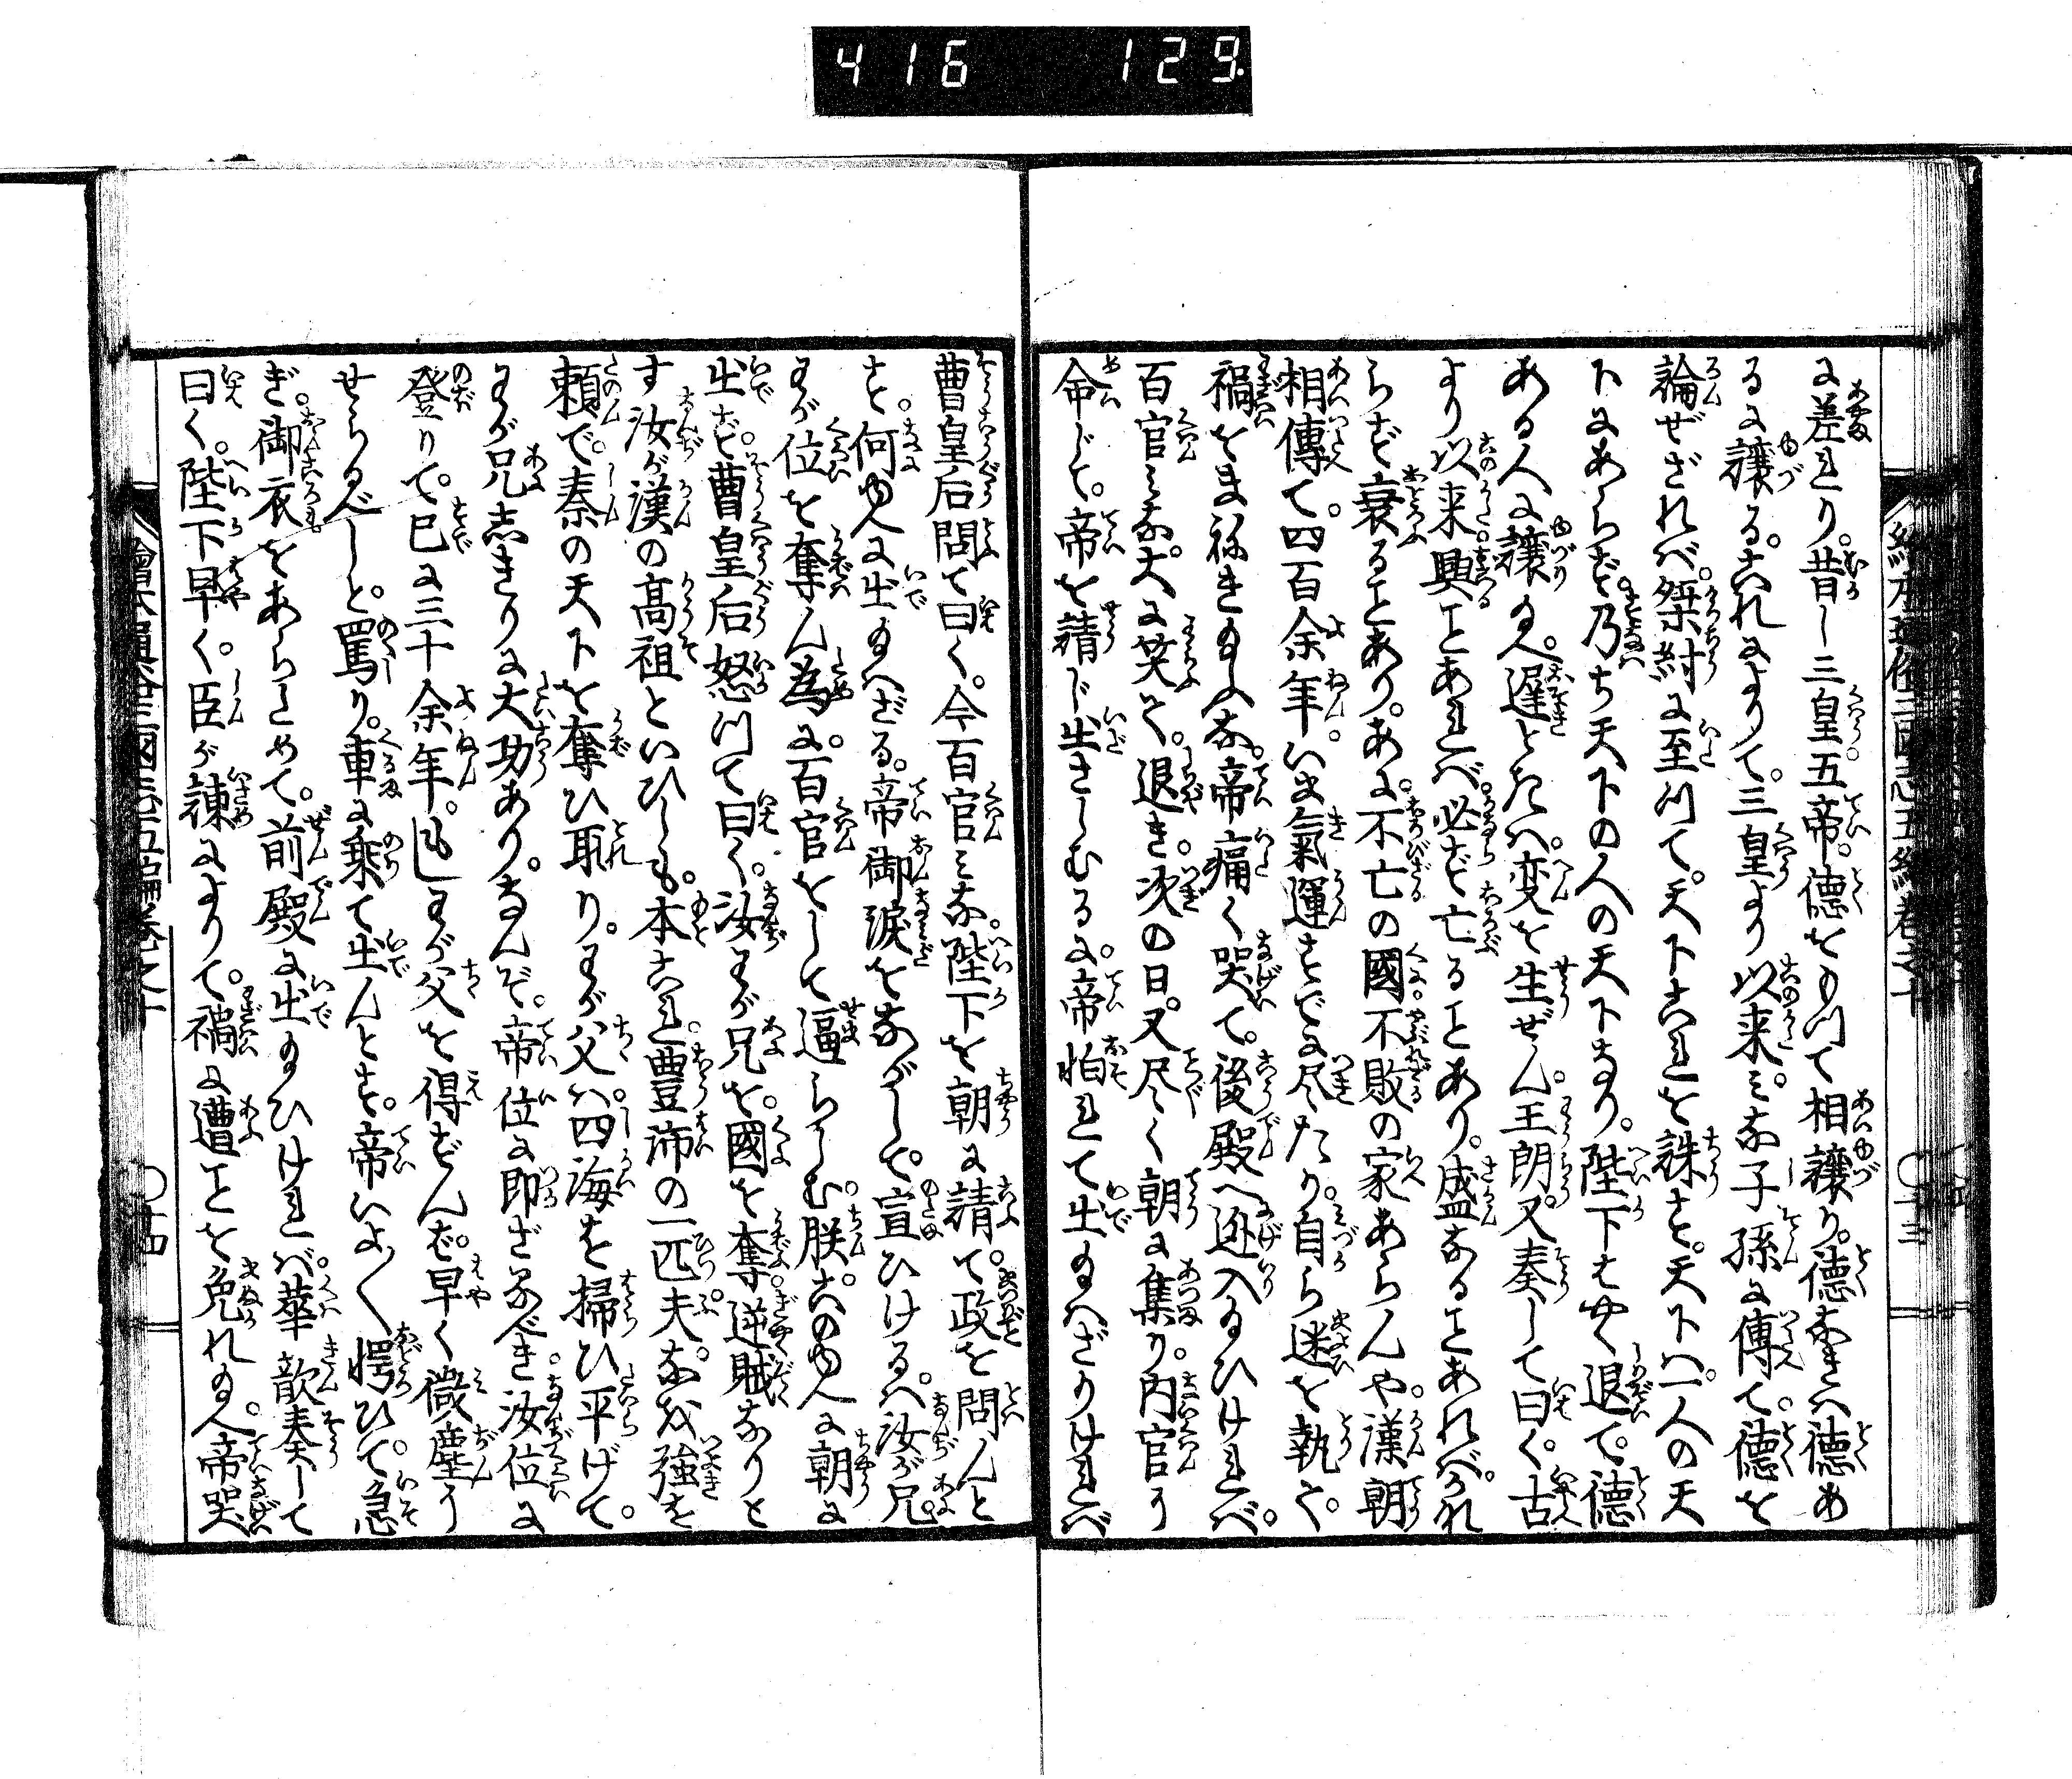 416 129
に差へり。昔し三皇五帝。徳をもつて相譲り。徳なきハ徳あ
るに譲る。これによりて。三皇より以来。ミな子孫に傳て。徳を
論ぜざれバ。桀紂に至ツて。天下これを誅す。天下ハ。一人の天
下にあらず。乃ち天下の人の天下なり。陛下はやく退て。徳
ある人に譲り給へ。遅とたハ。変を生ぜん。王朗又奏して曰く。古
より以来。興ことあれバ。必ず亡ることあり。盛なることあれバ。かれ
らず衰ることあり。あに。不亡の國。不敗の家あらんや。漢朝
相傳て。四百余年。いま氣運すでに尽たり。自ら迷を執て。
禍をまねき給ふな。帝痛く哭て。後殿へ逃入給ひけれバ。
百官ミな。大に笑て。退き。次の日。又尽く朝に集り。内官に
命じて。帝を請じ出さしむるに。帝怕れて出給ハざりけれバ
曹皇后問て曰く。今百官ミな。陛下を朝に請て。政を問んと
す。何ゆへに出給ハざる。帝御涙をながして。宣ひけるハ。汝が兄。
わが位を奪ん為に。百官をして逼らしむ。朕。このゆへに朝に
出ず。曹皇后怒ツて曰く。汝わが兄を。國を奪逆賊なりと
す。汝が漢の高祖といひしも。本これ。豊沛の一匹夫。なを強を
頼で。秦の天下を奪ひ取り。わが父ハ。四海を掃ひ平げて。
わが兄しきりに大功あり。なんぞ。帝位に即ざるべき。汝位に
登りて。已に三十余年。もしわが父を得ずんバ。早く微塵に
せらるべしと。罵り。車に乗て出んとす。帝いよ〱愕ひて。急
ぎ。御衣をあらためて。前殿に出給ひけれバ。華歆奏して
曰く。陛下早く。臣が諫によりて。禍に遭ことを免れ給へ。帝哭